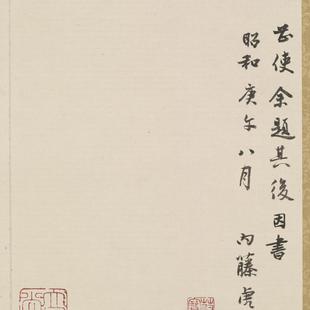 使余題其後因書
昭和庚午八月　内藤虎